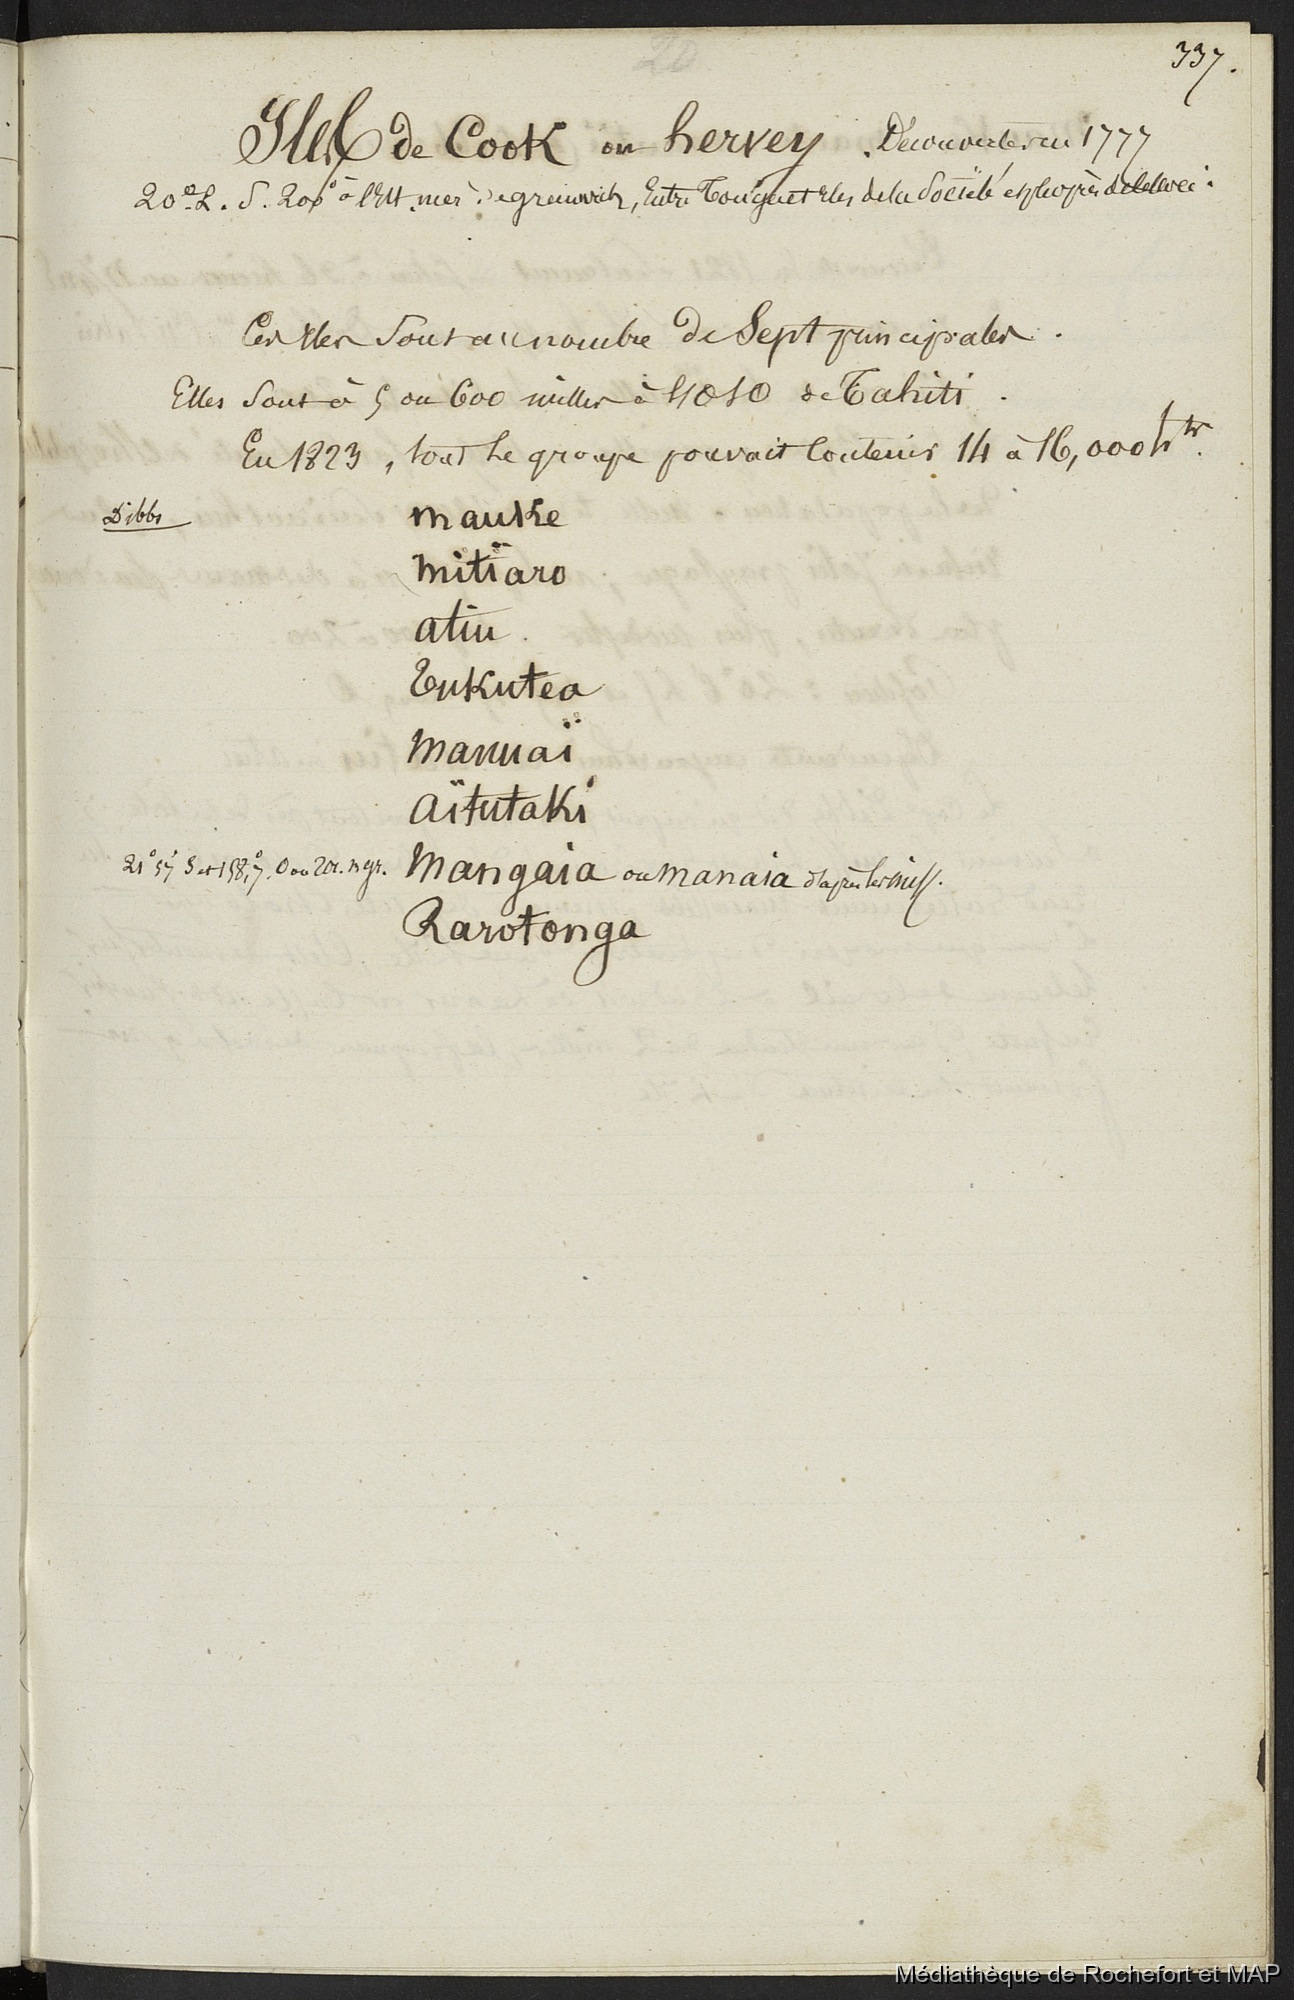 20
337.
Iles de Cook ou hervey. Découvertes en 1777
20° L. S. 200° à l'Est mer. de greenwich, Entre Tonga et Iles de la Société et plus près de celle ci.
Ces Iles Sont au nombre de Sept principales.
Elles Sont à 5 ou 600 milles à l'OSO de Tahiti.
En 1823, tout le groupe pouvait Contenir 14 à 16,000 hts.
Dibbs mauke
mitïaro
atiu.
Tukutea
Manuaï
Aïtutaki
21° 57' S et 158,°7. O ou Mangaia ou manaia d'après les miss.
Rarotonga
Médiathèque de Rochefort et MAP